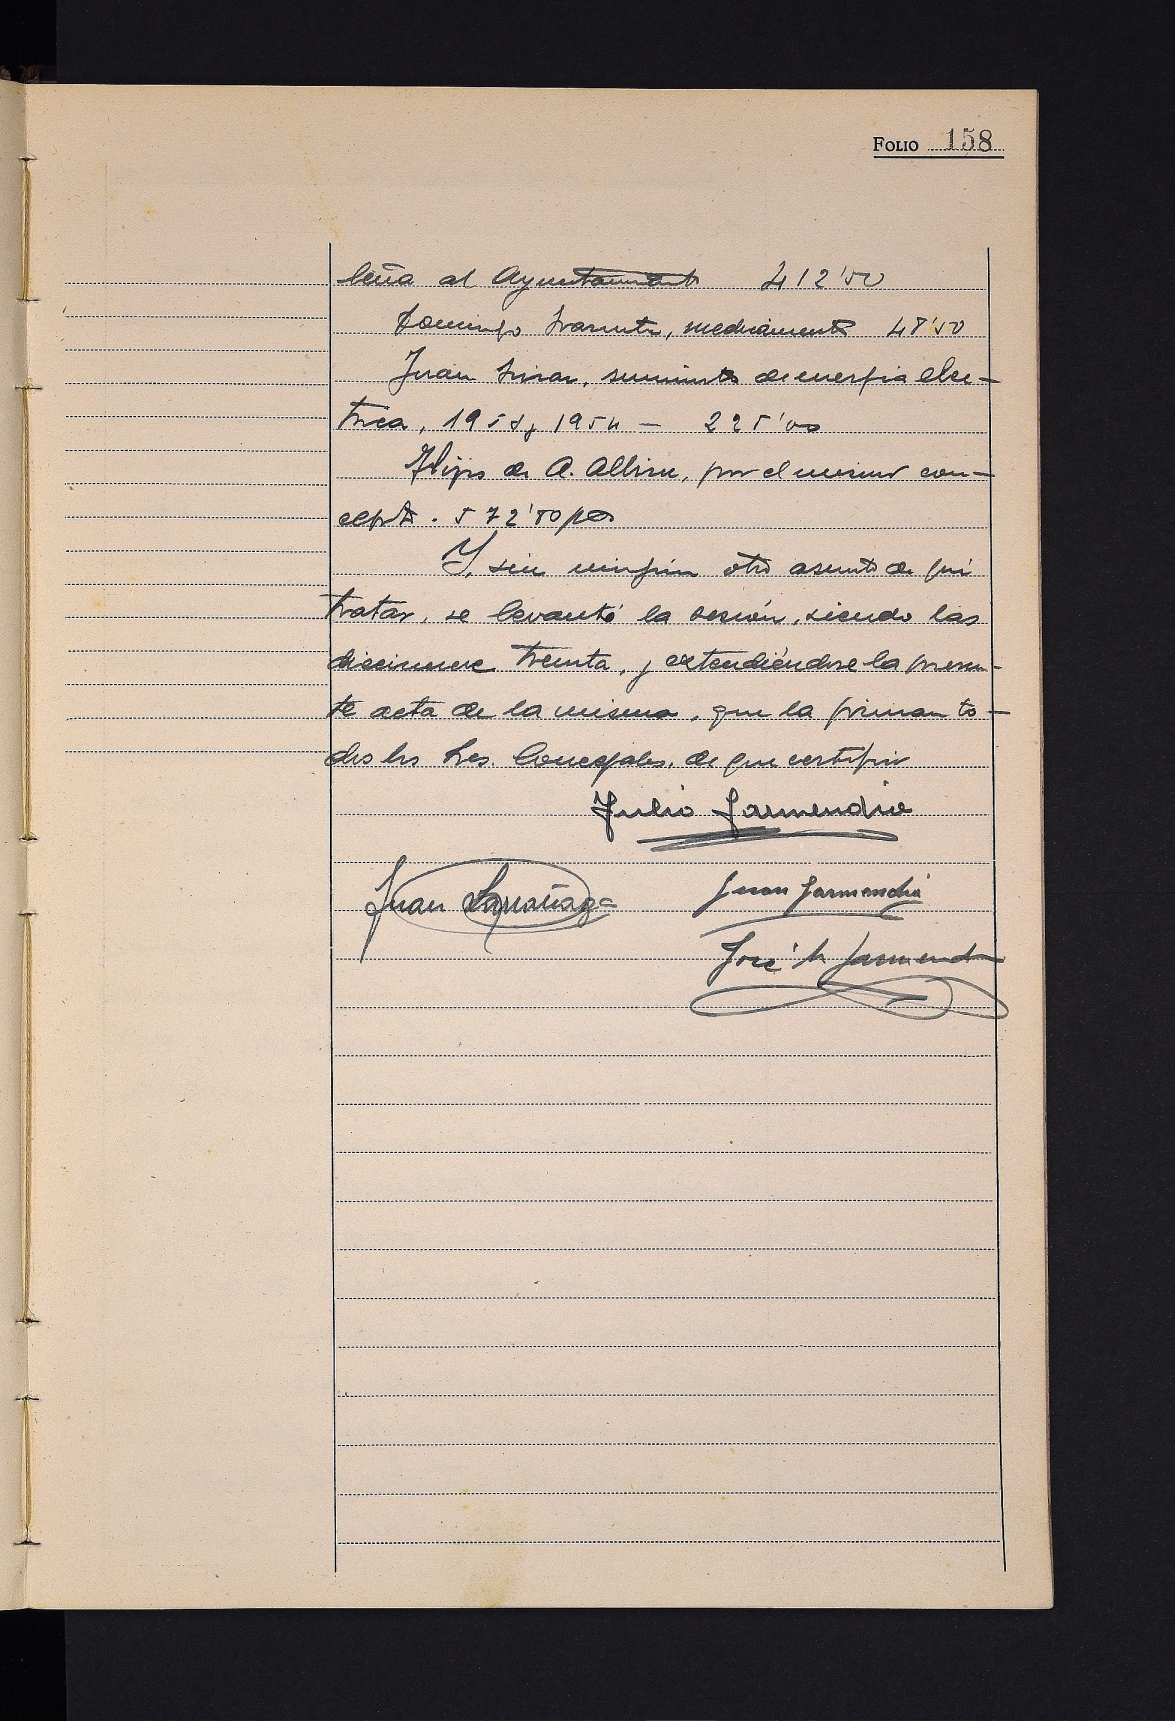 FOLIO 158
leña al Ayuntamiento 412'50
Domingo, medicamentos 48'50
Juan, suministro de energía eléc-
trica, 1953 y 1954 — 225'00
Hijos de A. Albisu, por el mismo con-
cepto. 572'80 ptas
Y, sin ningún otro asunto de qué
tratar, se levantó la sesión, siendo las
diecinueve treinta, y extendiéndose la presen-
te acta de la misma, que la firman to-
dos los Sres. Concejales, de que certifico
Julio Garmendia
Juan Larrañaga Juan Garmendia
José M Garmendia